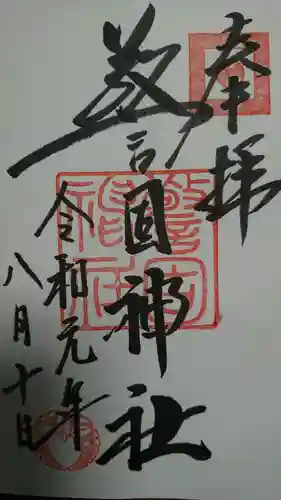 奉拝
警固神社
令和元年
八月十日